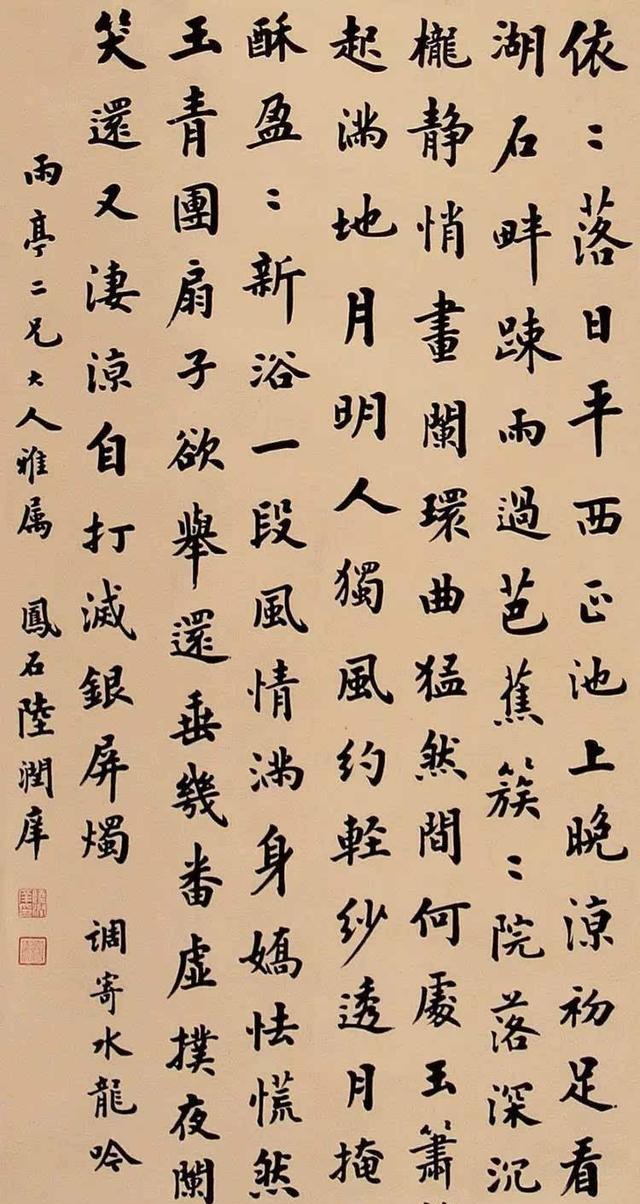 依〻落日平西正池上晚涼初足看
湖石畔踈雨過芭蕉簇〻院落深沉
櫳靜悄畫闌環曲猛然間何處玉簫
起滿地月明人獨風約輕紗透月掩
酥盈〻新浴一段風情滿身嬌怯慌然
玉青團扇子欲舉還垂幾番虛撲夜闌
笑還又淒涼自打滅銀屏燭 調寄水龍吟
雨亭二兄大人雅属 鳳石陸潤庠